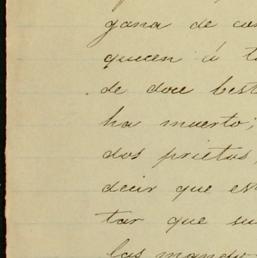 gana de co
quecen á t
de doce best
ha muerto;
dos prietas,
decir que es
tar que su
las mando